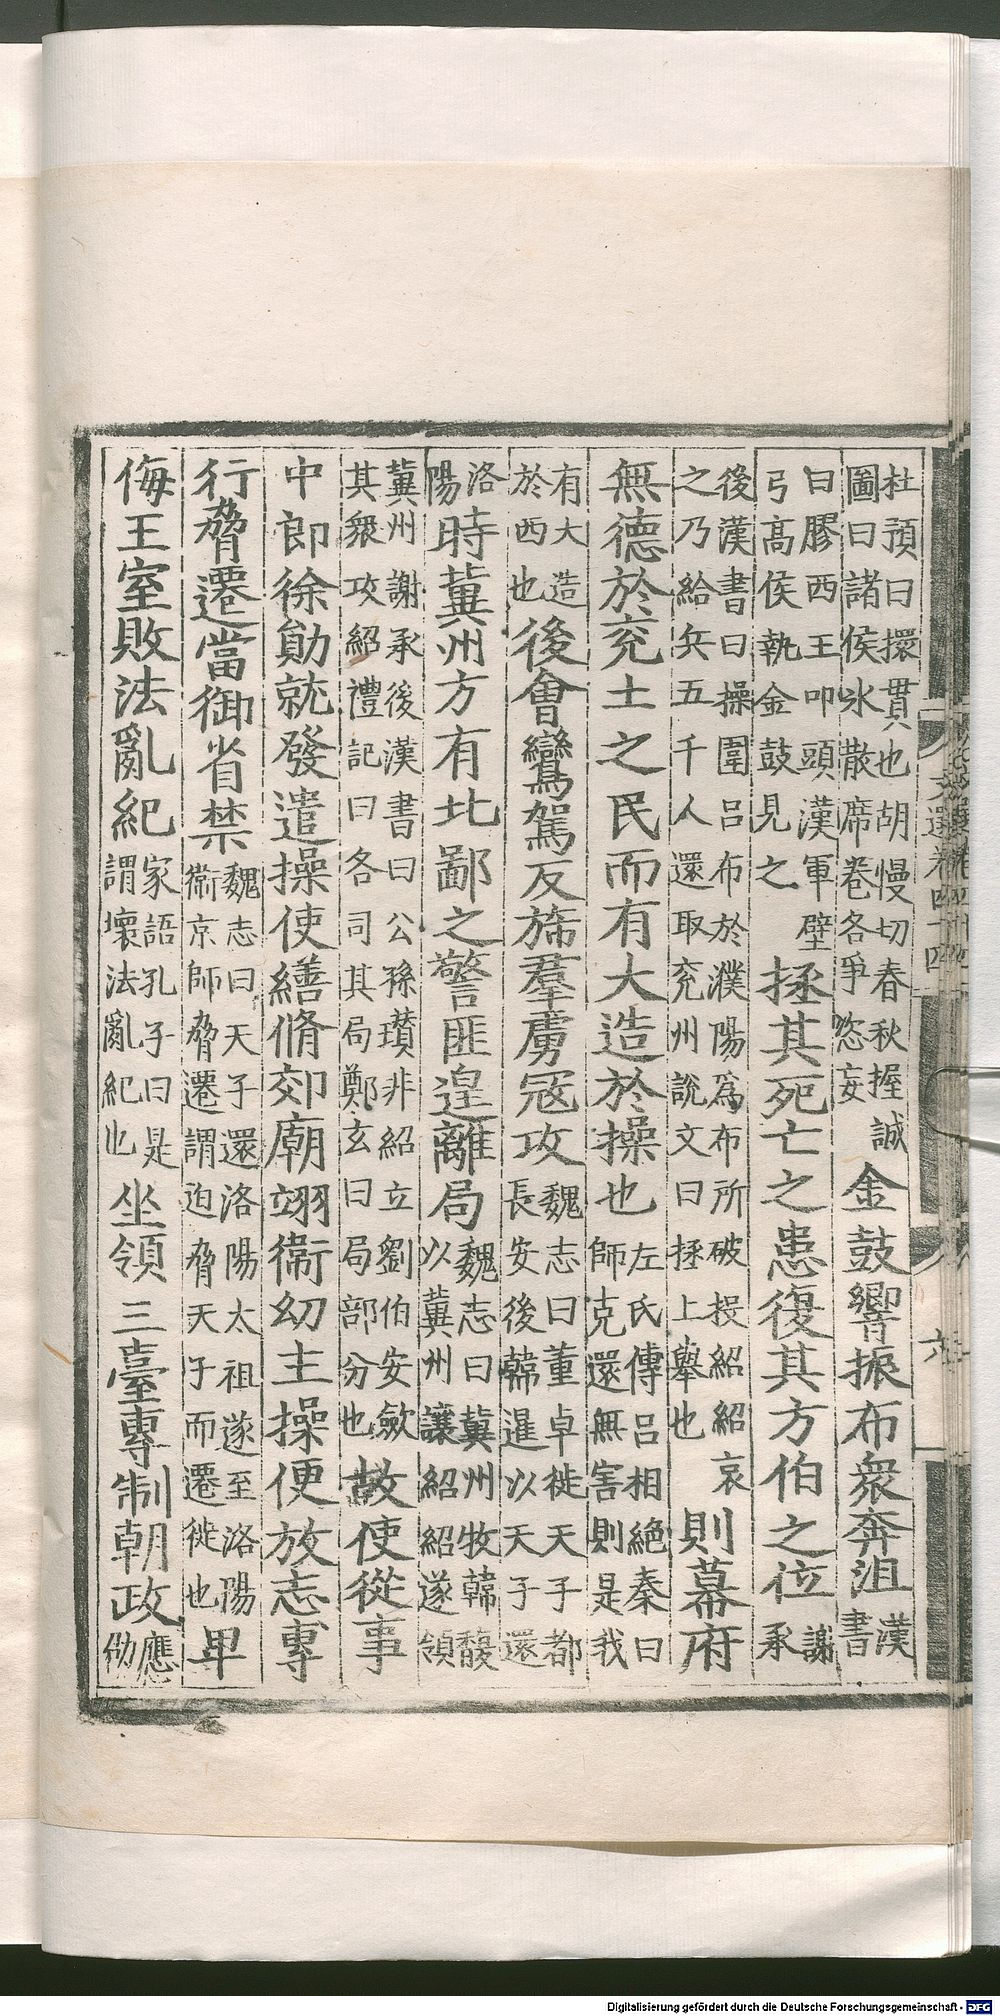 文選卷四十四
六
杜預曰擐貫也胡慢切春秋握誠圖曰諸侯氷散席卷各爭恣妄金鼓響振布衆奔沮漢書
曰膠西王叩頭漢軍壁弓高侯執金鼓見之拯其死亡之患復其方伯之位謝承
後漢書曰操圍呂布於濮陽爲布所破投紹紹哀之乃給兵五千人還取兖州說文曰拯上舉也則幕府
無德於兖土之民而有大造於操也左氏傳呂相絕秦曰師克還無害則是我
有大造於西也後會鸞駕反斾羣虜冦攻魏志曰董卓徙天子都長安後韓暹以天子還
洛陽時冀州方有北鄙之警匪遑離局魏志曰冀州牧韓馥以冀州讓紹紹遂領
冀州謝承後漢書曰公孫瓚非紹立劉伯安歛其衆攻紹禮記曰各司其局鄭玄曰局部分也故使從事
中郎徐勛就發遣操使繕脩郊廟翊衞幼主操便放志專
行脅遷當御省禁魏志曰天子還洛陽太祖遂至洛陽衞京師脅遷謂迫脅天子而遷徙也卑
侮王室敗法亂紀家語孔子曰是謂壞法亂紀也坐領三臺專制朝政應劭
Digitalisierung gefördert durch die Deutsche Forschungsgemeinschaft - DFG